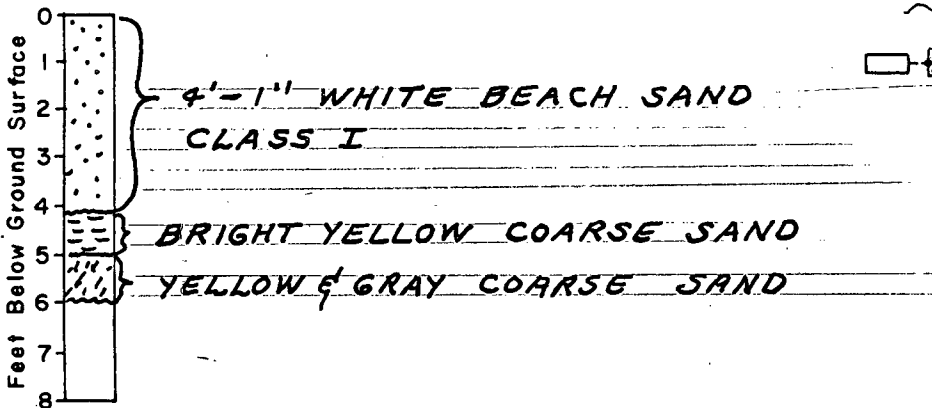 Feet Below Ground Surface
0
1
2
3
4
5
6
7
8
4'-1" WHITE BEACH SAND
CLASS I
BRIGHT YELLOW COARSE SAND
YELLOW & GRAY COARSE SAND